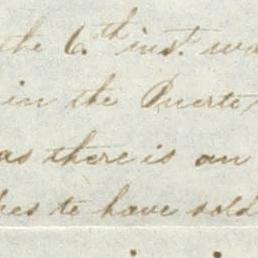 the 6.th inst. wa
in the Puerto
as there is an
hes to have sold